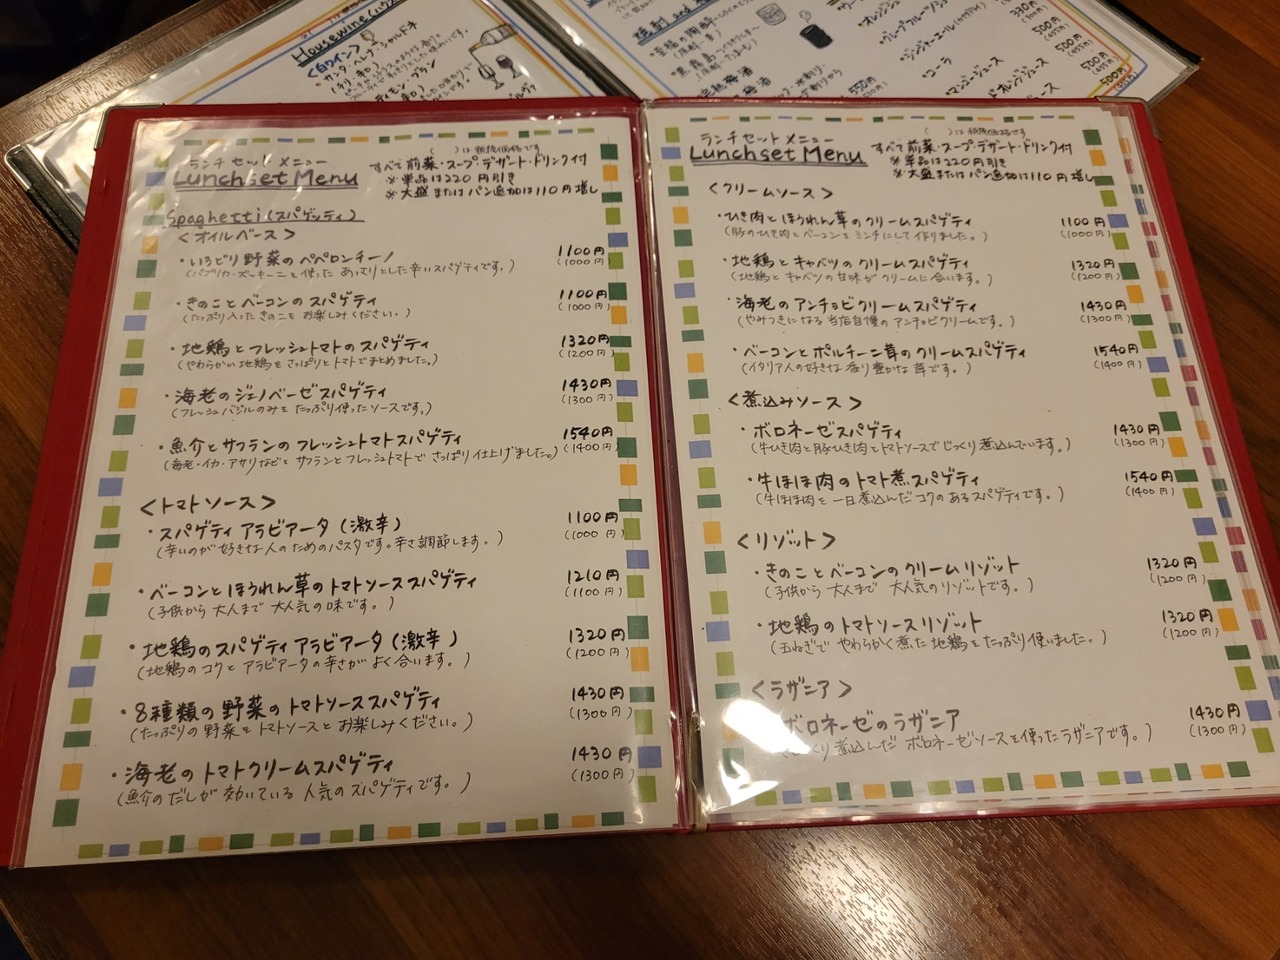 Housewine(ハウス
<白ワイン>
サンタ・ヘレナ・シャルドネ
(チリ・辛口)
グレープフルーツジ
ジンジャーエール
コーラ
マンゴージュース
オレンジジュース
330円
500円
500円
500円
500円
550円
ランチセット メニュー
Lunch set Menu
( )は税抜価格です
すべて前菜・スープ・デザート・ドリンク付
※単品は220円引き
※大盛またはパン追加は110円増し
Spaghetti(スパゲッティ)
<オイルベース>
・いろどり野菜のペペロンチーノ 1100円
(パプリカ・ズッキーニを使ったあっさりとした辛いスパゲティです。) (1000円)
・きのことベーコンのスパゲティ 1100円
(たっぷり入ったきのこをお楽しみください。) (1000円)
・地鶏とフレッシュトマトのスパゲティ 1320円
(やわらかい地鶏をさっぱりとトマトでまとめました。) (1200円)
・海老のジェノベーゼスパゲティ 1430円
(フレッシュバジルのみをたっぷり使ったソースです。) (1300円)
・魚介とサフランのフレッシュトマトスパゲティ 1540円
(海老・イカ・アサリなどとサフランとフレッシュトマトでさっぱり仕上げました。) (1400円)
<トマトソース>
・スパゲティ アラビアータ(激辛) 1100円
(辛いのが好きな人のためのパスタです。辛さ調節します。) (1000円)
・ベーコンとほうれん草のトマトソーススパゲティ 1210円
(子供から大人まで大人気の味です。) (1100円)
・地鶏のスパゲティアラビアータ(激辛) 1320円
(地鶏のコクとアラビアータの辛さがよく合います。) (1200円)
・8種類の野菜のトマトソーススパゲティ 1430円
(たっぷりの野菜をトマトソースとお楽しみください。) (1300円)
・海老のトマトクリームスパゲティ 1430円
(魚介のだしが効いている人気のスパゲティです。) (1300円)
ランチセットメニュー
Lunch set Menu
( )は税抜価格です
すべて前菜・スープ・デザート・ドリンク付
※単品は220円引き
※大盛またはパン追加は110円増し
<クリームソース>
・ひき肉とほうれん草のクリームスパゲティ 1100円
(豚のひき肉とベーコンをミンチにして作りました。) (1000円)
・地鶏とキャベツのクリームスパゲティ 1320円
(地鶏とキャベツの甘味がクリームに合います。) (1200円)
・海老のアンチョビクリームスパゲティ 1430円
(やみつきになる当店自慢のアンチョビクリームです。) (1300円)
・ベーコンとポルチーニ茸のクリームスパゲティ 1540円
(イタリア人の好きな香り豊かな茸です。) (1400円)
<煮込みソース>
・ボロネーゼスパゲティ 1430円
(牛ひき肉と豚ひき肉とトマトソースでじっくり煮込んでいます。) (1300円)
・牛ほほ肉のトマト煮スパゲティ 1540円
(牛ほほ肉を一日煮込んだコクのあるスパゲティです。) (1400円)
<リゾット>
・きのことベーコンのクリームリゾット 1320円
(子供から大人まで大人気のリゾットです。) (1200円)
・地鶏のトマトソースリゾット 1320円
(玉ねぎでやわらかく煮た地鶏をたっぷり使いました。) (1200円)
<ラザニア>
ボロネーゼのラザニア 1430円
くり煮込んだボロネーゼソースを使ったラザニアです。) (1300円)